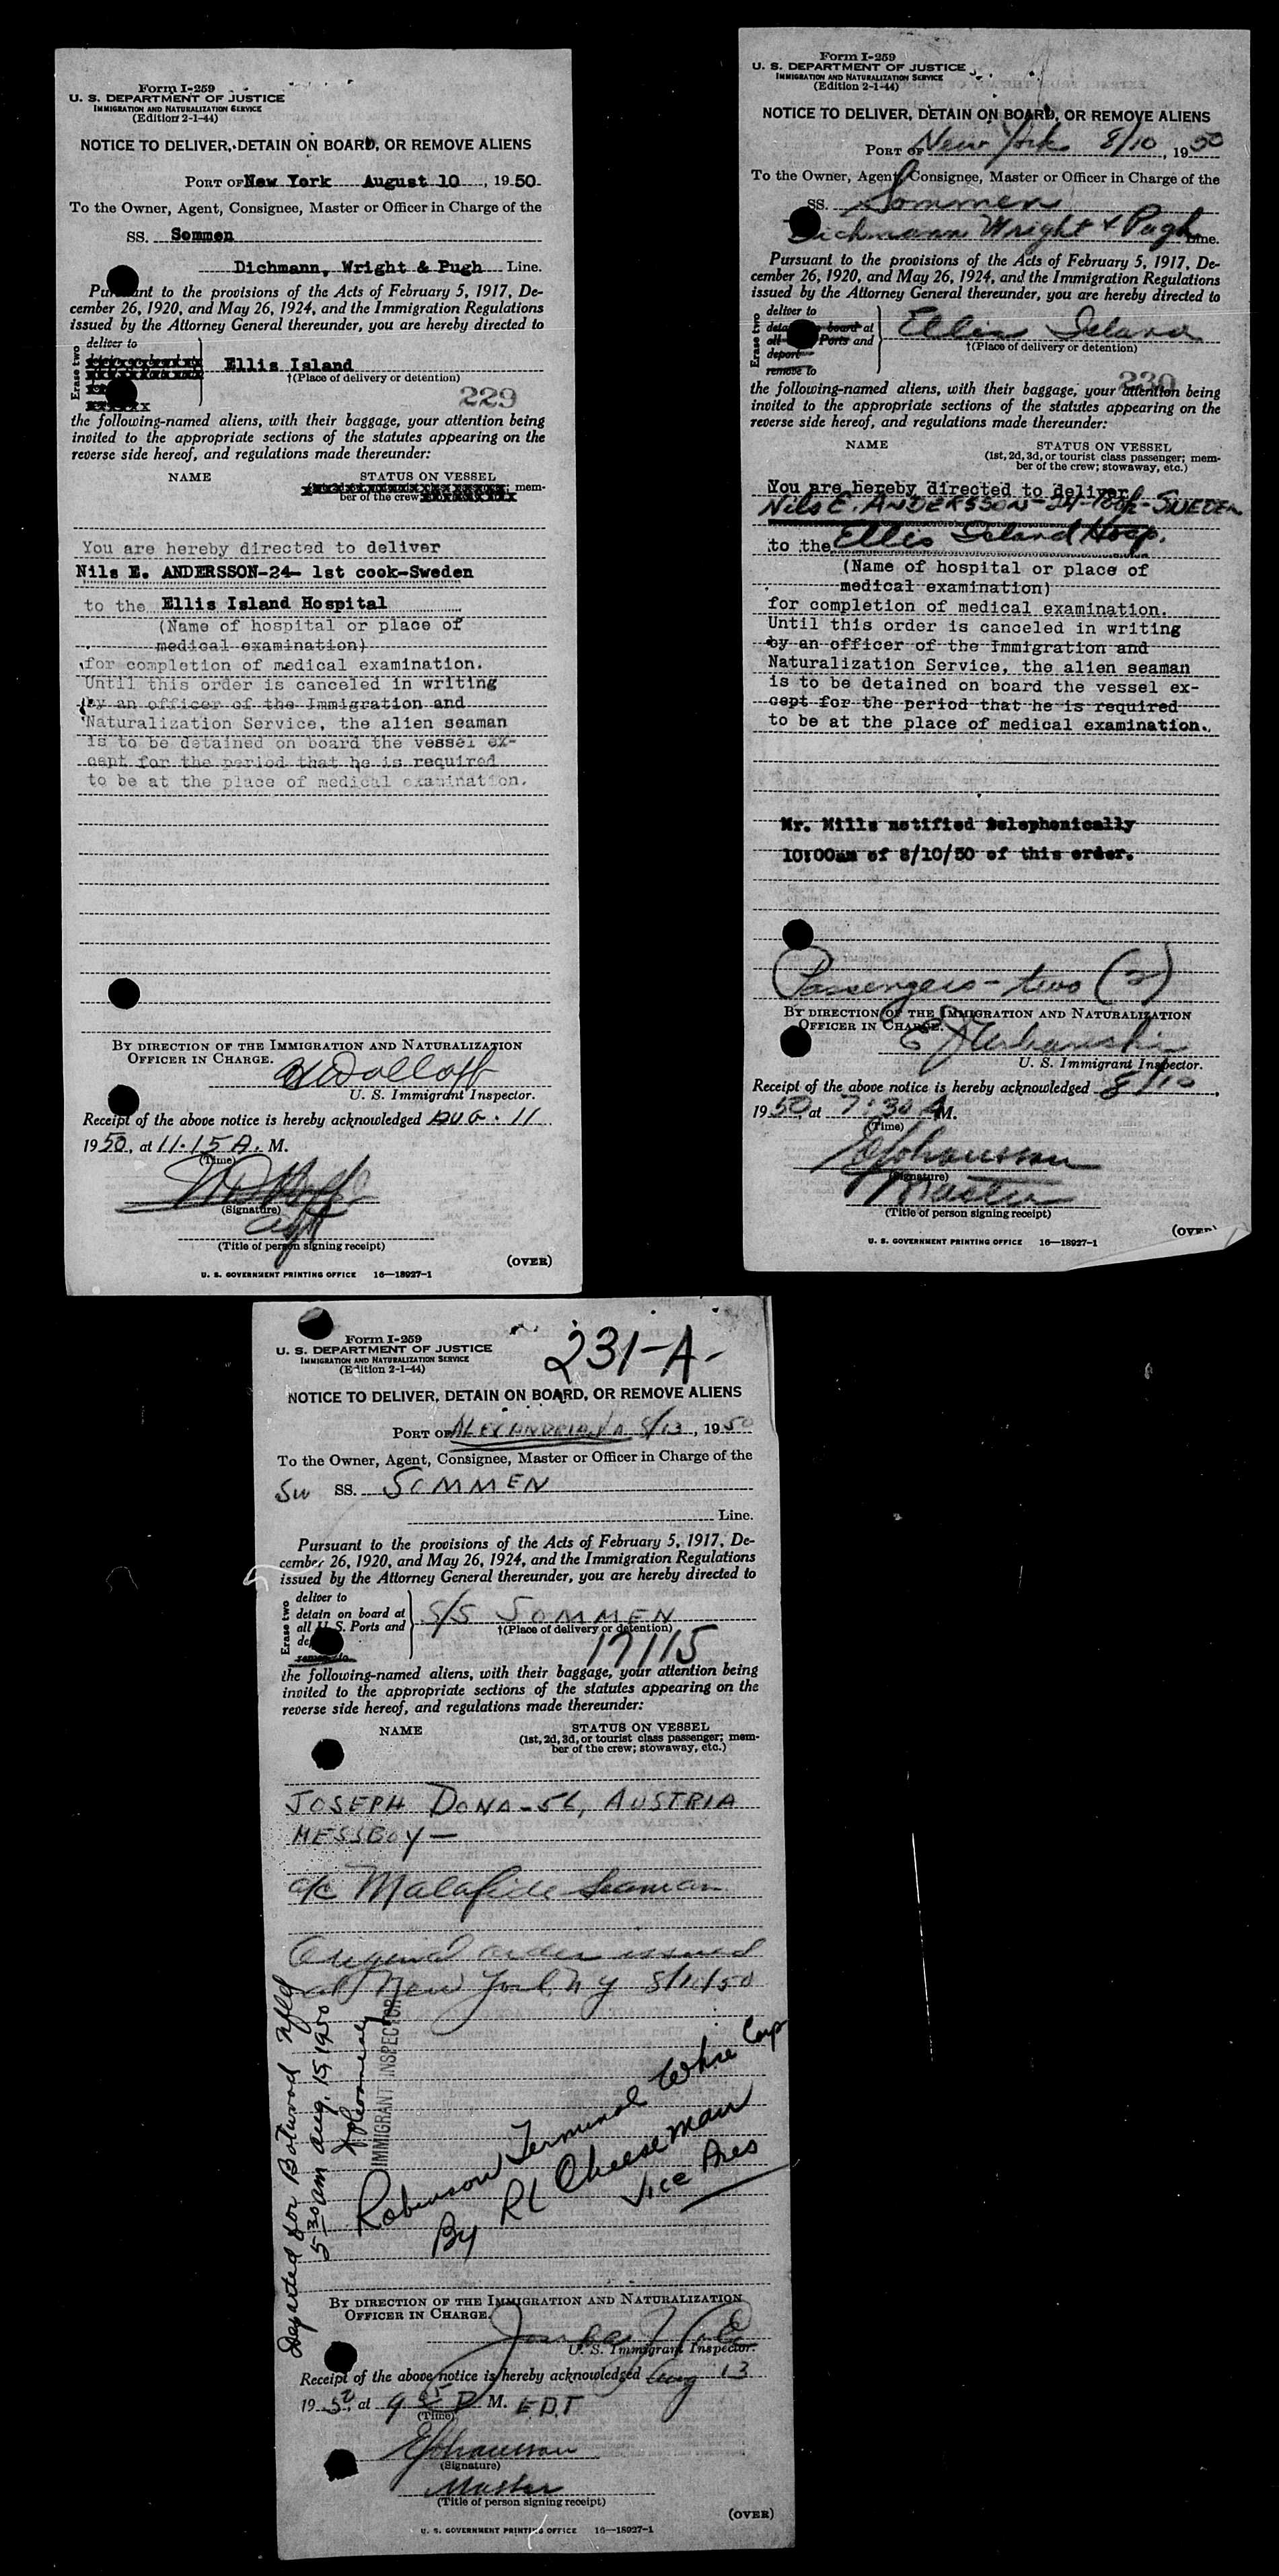 Form I-259
U. S. DEPARTMENT OF JUSTICE
IMMIGRATION AND NATURALIZATION SERVICE
(Edition 2-1-44)
NOTICE TO DELIVER, DETAIN ON BOARD, OR REMOVE ALIENS
PORT OF New York August 10, 1950
To the Owner, Agent, Consignee, Master or Officer in Charge of the
SS. Sommen
Dichmann, Wright & Pugh Line.
Pursuant to the provisions of the Acts of February 5, 1917, De-
cember 26, 1920, and May 26, 1924, and the Immigration Regulations
issued by the Attorney General thereunder, you are hereby directed to
Erase two
deliver to
Ellis Island
†(Place of delivery or detention)
229
the following-named aliens, with their baggage, your attention being
invited to the appropriate sections of the statutes appearing on the
reverse side hereof, and regulations made thereunder:
NAME STATUS ON VESSEL
mem-
ber of the crew
You are hereby directed to deliver
Nils E. ANDERSSON-24- 1st cook-Sweden
to the Ellis Island Hospital
(Name of hospital or place of
medical examination)
for completion of medical examination.
Until this order is canceled in writing
by an officer of the Immigration and
Naturalization Service, the alien seaman
is to be detained on board the vessel ex-
cept for the period that he is required
to be at the place of medical examination.
BY DIRECTION OF THE IMMIGRATION AND NATURALIZATION
OFFICER IN CHARGE.
U. S. Immigrant Inspector.
Receipt of the above notice is hereby acknowledged AUG. 11
1950, at 11.15 A. M.
(Time)
(Signature)
(Title of person signing receipt)
(OVER)
U. S. GOVERNMENT PRINTING OFFICE 16—18927-1
Form I-259
U. S. DEPARTMENT OF JUSTICE
IMMIGRATION AND NATURALIZATION SERVICE
(Edition 2-1-44)
NOTICE TO DELIVER, DETAIN ON BOARD, OR REMOVE ALIENS
PORT OF New York 8/10, 1950
To the Owner, Agent, Consignee, Master or Officer in Charge of the
SS. Sommen
Dichmann Wright & Pugh Line.
Pursuant to the provisions of the Acts of February 5, 1917, De-
cember 26, 1920, and May 26, 1924, and the Immigration Regulations
issued by the Attorney General thereunder, you are hereby directed to
Erase two
deliver to
detain on board at
all U. S. Ports and
deport
remove to
Ellis Island
†(Place of delivery or detention)
230
the following-named aliens, with their baggage, your attention being
invited to the appropriate sections of the statutes appearing on the
reverse side hereof, and regulations made thereunder:
NAME STATUS ON VESSEL
(1st, 2d, 3d, or tourist class passenger; mem-
ber of the crew; stowaway, etc.)
You are hereby directed to deliver
Nils E. ANDERSSON-24-Cook-SWEDEN
to the Ellis Island Hosp.
(Name of hospital or place of
medical examination)
for completion of medical examination.
Until this order is canceled in writing
by an officer of the Immigration and
Naturalization Service, the alien seaman
is to be detained on board the vessel ex-
cept for the period that he is required
to be at the place of medical examination.
Mr. Mills notified telephonically
10:00am of 8/10/50 of this order.
Passengers - two (2)
BY DIRECTION OF THE IMMIGRATION AND NATURALIZATION
OFFICER IN CHARGE.
U. S. Immigrant Inspector.
Receipt of the above notice is hereby acknowledged 8/10,
1950, at 7:30 A M.
(Time)
E Johansson
(Signature)
Master
(Title of person signing receipt)
(OVER)
U. S. GOVERNMENT PRINTING OFFICE 16—18927-1
Form I-259
U. S. DEPARTMENT OF JUSTICE
IMMIGRATION AND NATURALIZATION SERVICE
(Edition 2-1-44)
231-A-
NOTICE TO DELIVER, DETAIN ON BOARD, OR REMOVE ALIENS
PORT OF ALEXANDRIA, VA 8/13, 1950
To the Owner, Agent, Consignee, Master or Officer in Charge of the
Sw SS. SOMMEN
Line.
Pursuant to the provisions of the Acts of February 5, 1917, De-
cember 26, 1920, and May 26, 1924, and the Immigration Regulations
issued by the Attorney General thereunder, you are hereby directed to
Erase two
deliver to
detain on board at
all U. S. Ports and
deport
remove to
S/S SOMMEN
†(Place of delivery or detention)
17115
the following-named aliens, with their baggage, your attention being
invited to the appropriate sections of the statutes appearing on the
reverse side hereof, and regulations made thereunder:
NAME STATUS ON VESSEL
(1st, 2d, 3d, or tourist class passenger; mem-
ber of the crew; stowaway, etc.)
JOSEPH DONA - 56, AUSTRIA
MESSBOY —
a/c Malafide Seaman
Original order issued
at New York N Y 8/11/50
Departed for Botwood Nfld
5 30 am Aug. 15, 1950
IMMIGRANT INSPECTOR
Robinson Terminal Whse Corp
By RL Cheeseman
Vice Pres
BY DIRECTION OF THE IMMIGRATION AND NATURALIZATION
OFFICER IN CHARGE.
U. S. Immigrant Inspector.
Receipt of the above notice is hereby acknowledged Aug 13
1950, at 9 P M. EDT
(Time)
E Johansson
(Signature)
Master
(Title of person signing receipt)
(OVER)
U. S. GOVERNMENT PRINTING OFFICE 16—18927-1